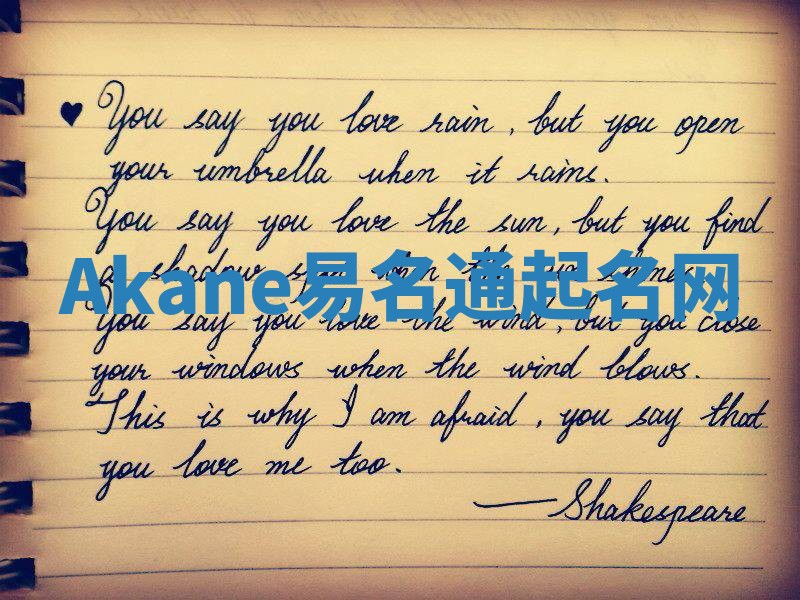 ♥ You say you love rain, but you open
your umbrella when it rains.
You say you love the sun, but you find
a shadow spot when the sun shines.
Akane易名通起名网
You say you love the wind, but you close
your windows when the wind blows.
This is why I am afraid, you say that
you love me too.
— Shakespeare